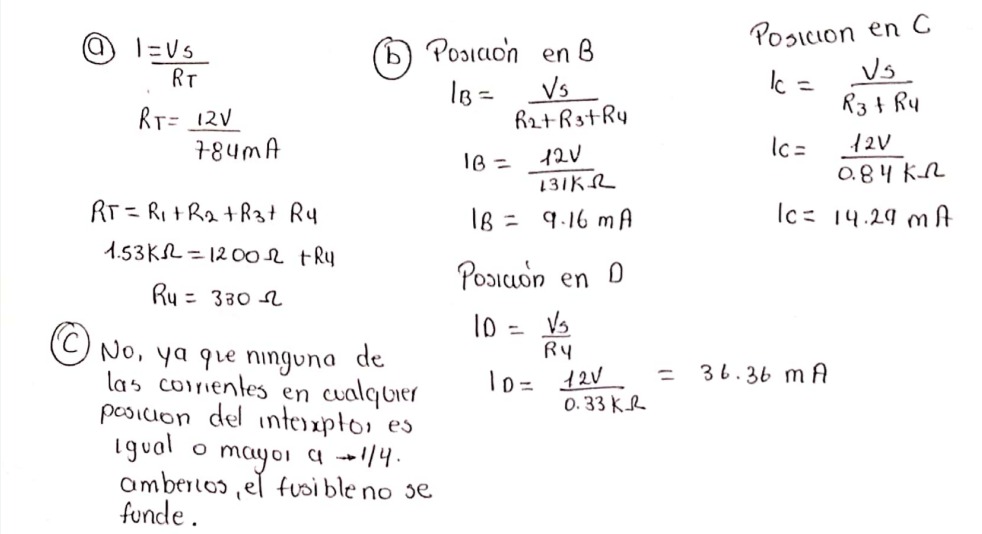 a I = Vs / RT
RT = 12V / 784mA
RT = R1 + R2 + R3 + R4
1.53KΩ = 1200Ω + R4
R4 = 330 Ω
b Posición en B
IB = Vs / R2+R3+R4
IB = 12V / 131KΩ
IB = 9.16 mA
Posicion en C
Ic = Vs / R3 + R4
Ic = 12V / 0.84 KΩ
Ic = 14.29 mA
Posición en D
ID = Vs / R4
ID = 12V / 0.33 KΩ = 36.36 mA
c No, ya que ninguna de
las corrientes en cualquier
posicion del interuptor es
igual o mayor a → 1/4.
amberios, el fusible no se
funde.